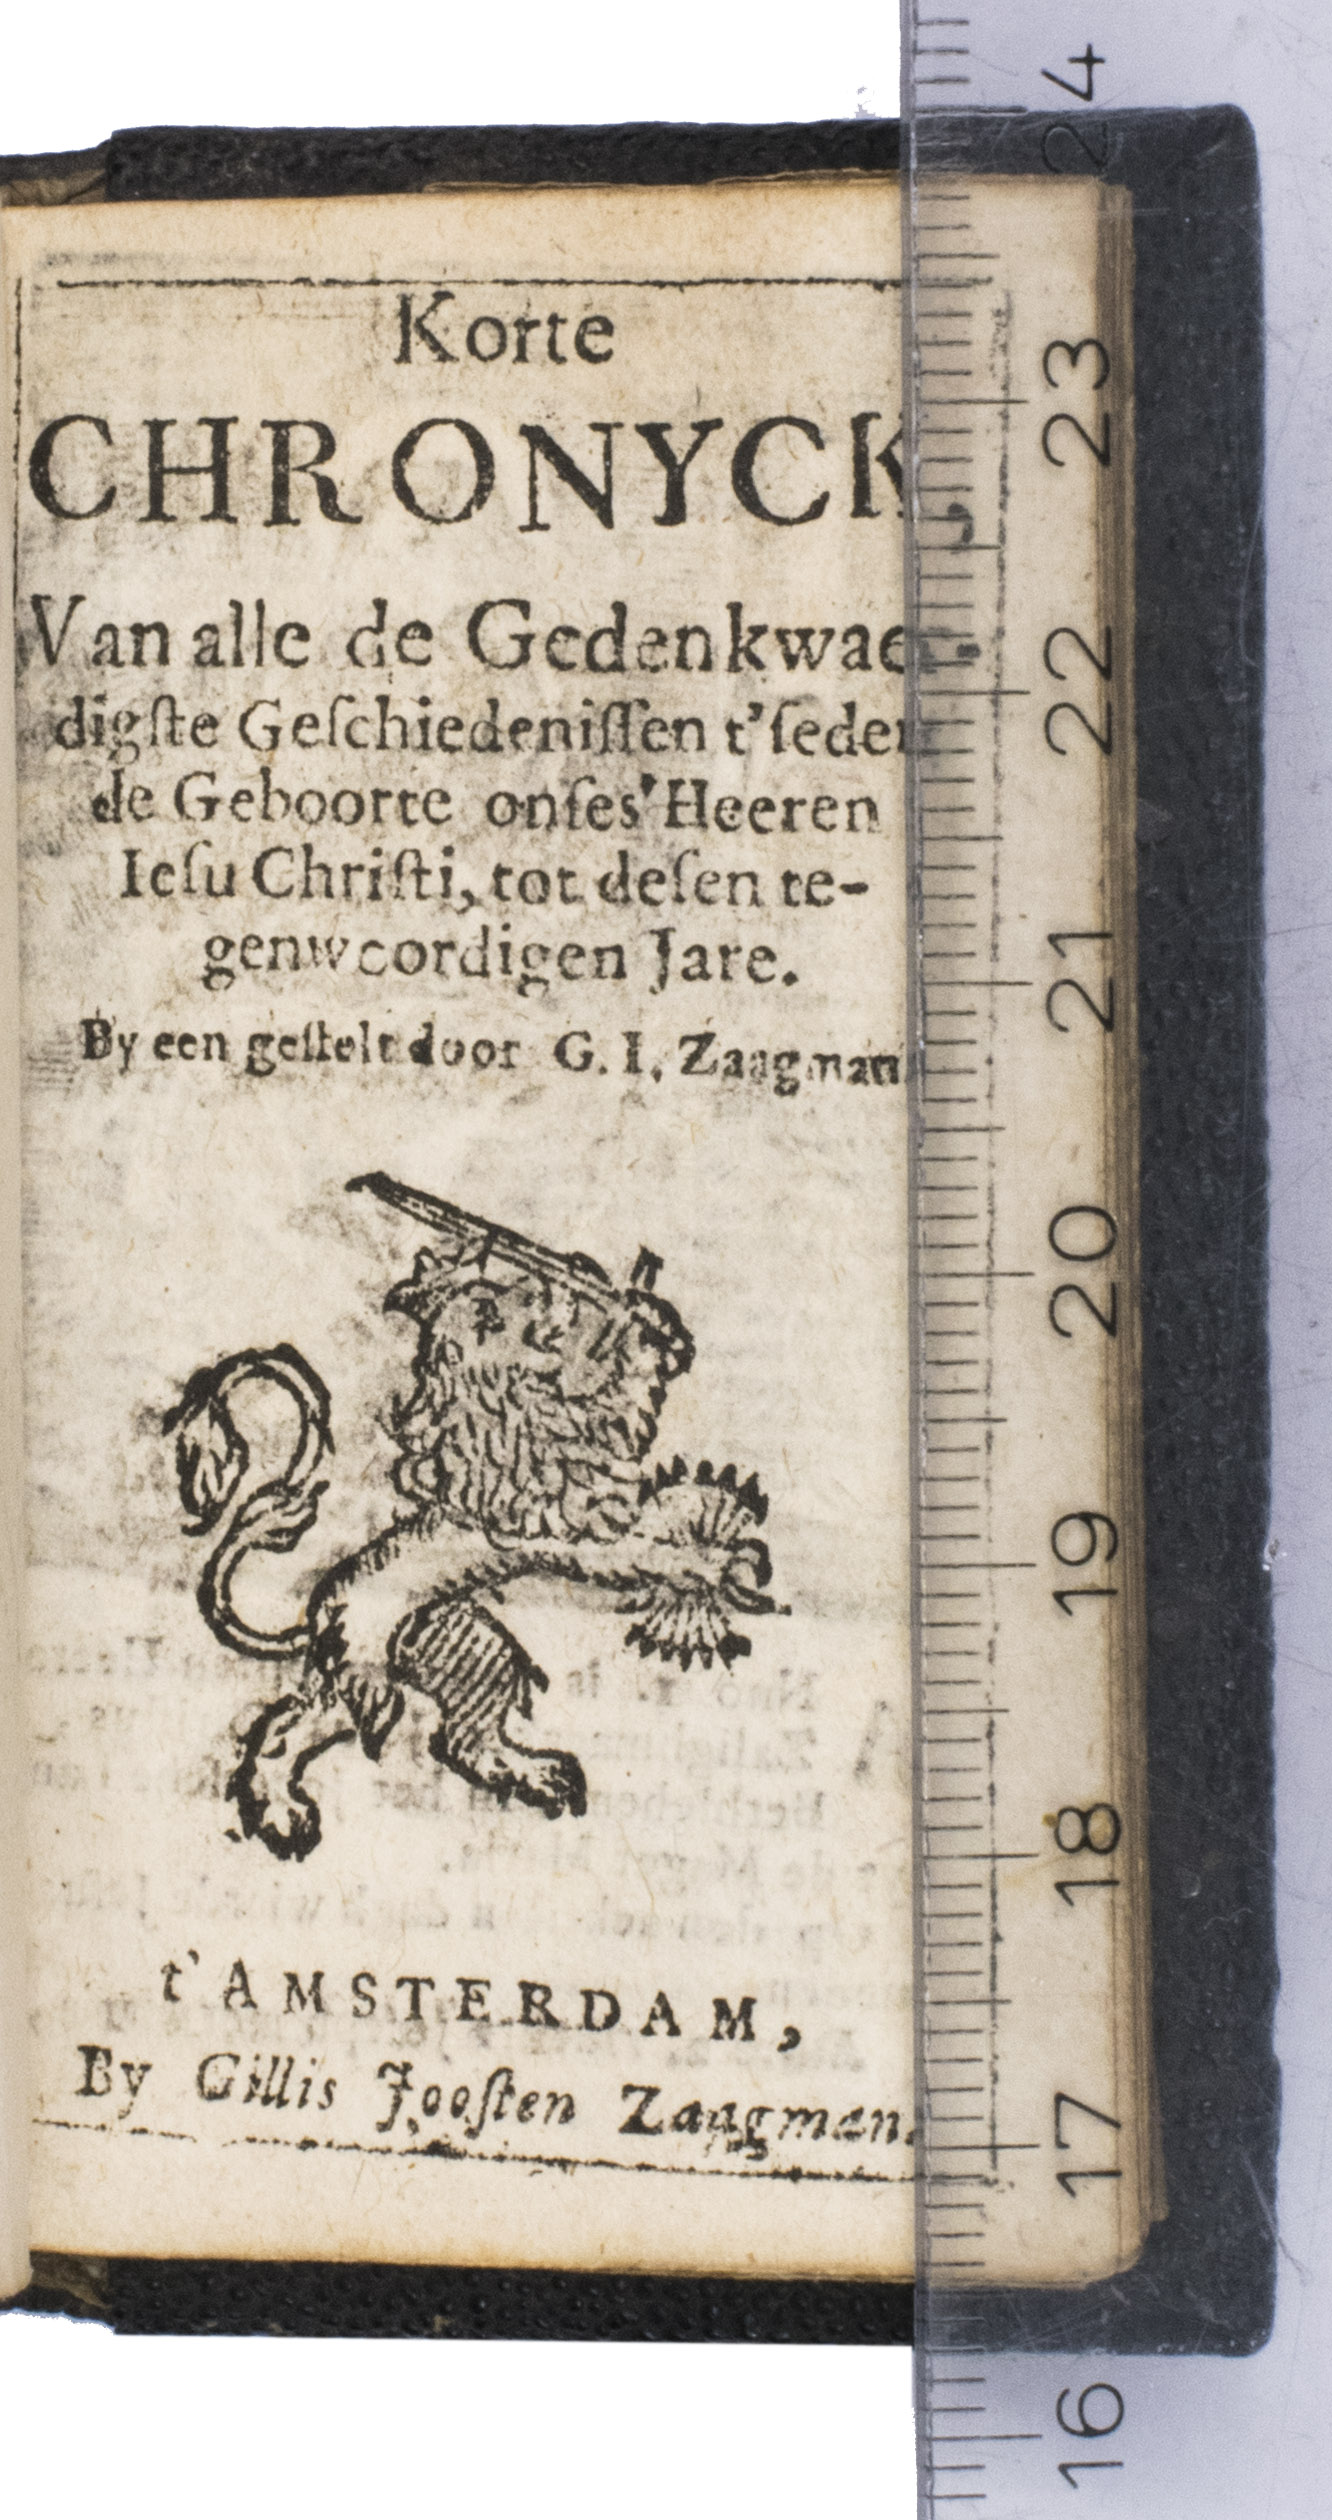 Korte
CHRONYCK,
Van alle de Gedenkwaer-
digſte Geſchiedeniſſen t'ſeder
de Geboorte onſes Heeren
Ieſu Chriſti, tot deſen te-
genwoordigen Jare.
By een geſtelt door G. I. Zaagman.
t'AMSTERDAM,
By Gillis Jooſten Zaagman.
24
23
22
21
20
19
18
17
16